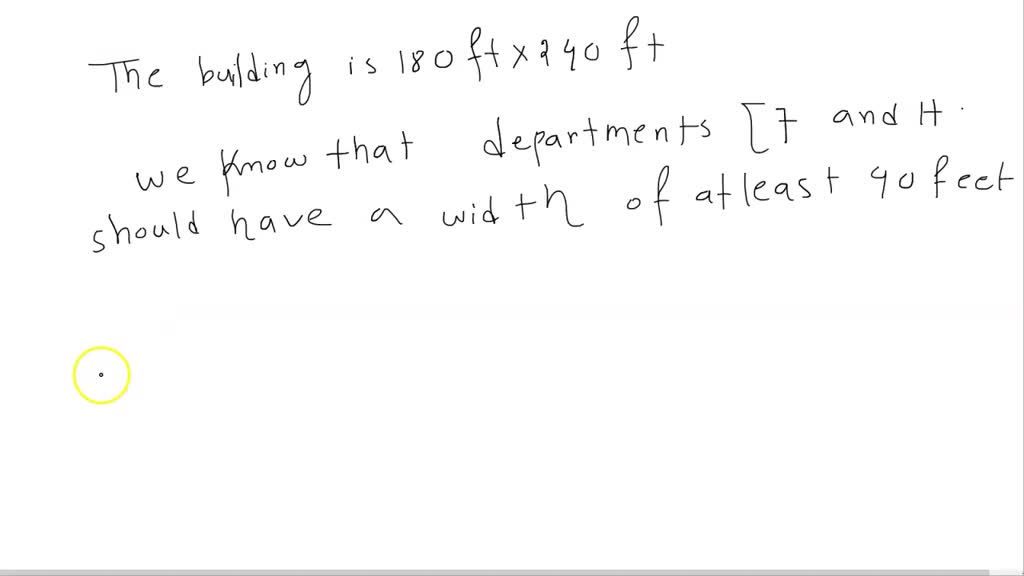 The building is 180ft x 240 ft
we know that departments [7 and H.
should have a width of atleast 40 feet